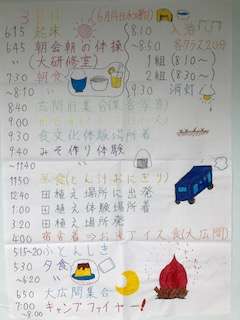 3日目(6月14日(水曜))
6:15 起床
6:45 朝会朝の体操
〃 (大研修室)
7:30 朝食
8:40 広間前集合
9:30 食文化体験場所着
9:40 みそ作り体験
~11:40
11:50 昼食(とん汁おにぎり)
12:40 田植え場所に出発
1:00 田植え体験場所着
3:20 田植え場所発
4:00 アイス食(大広間)
5:15~20 ふとんしき
5:30 夕食
~6:20
6:50 大広間集合
7:00 キャンプファイヤー!
~8:00
8:10 入浴
~8:50 各クラス20分
1組(8:10~)
2組(8:30~)
9:30 消灯